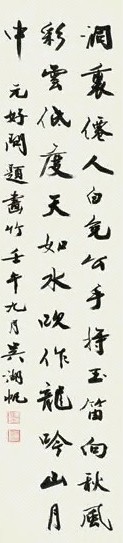 洞裏僊人白兔公手持玉笛向秋風
彩雲低度天如水吹作龍吟山月
中 元好問題畫竹壬午九月吳湖帆